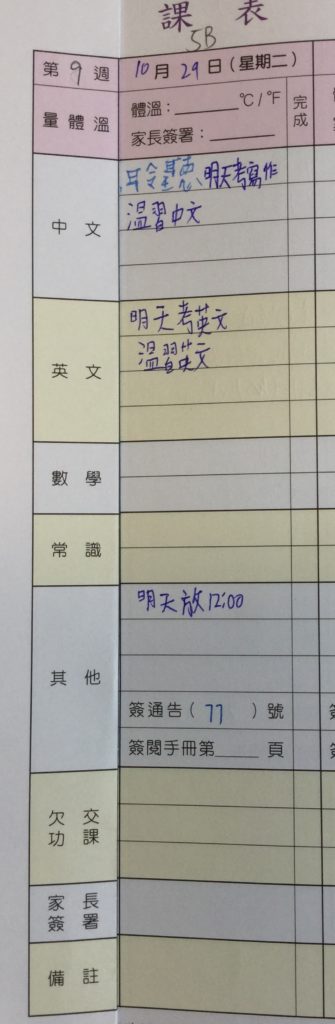 課表
5B
第9週 10月29日(星期二)
量體溫 體溫：______℃/℉ 完成
家長簽署：______
中文 聆聽、明天考寫作
溫習中文
英文 明天考英文
溫習英文
數學
常識
其他 明天放12:00
簽通告(77)號
簽閱手冊第____頁
欠交功課
家長簽署
備註